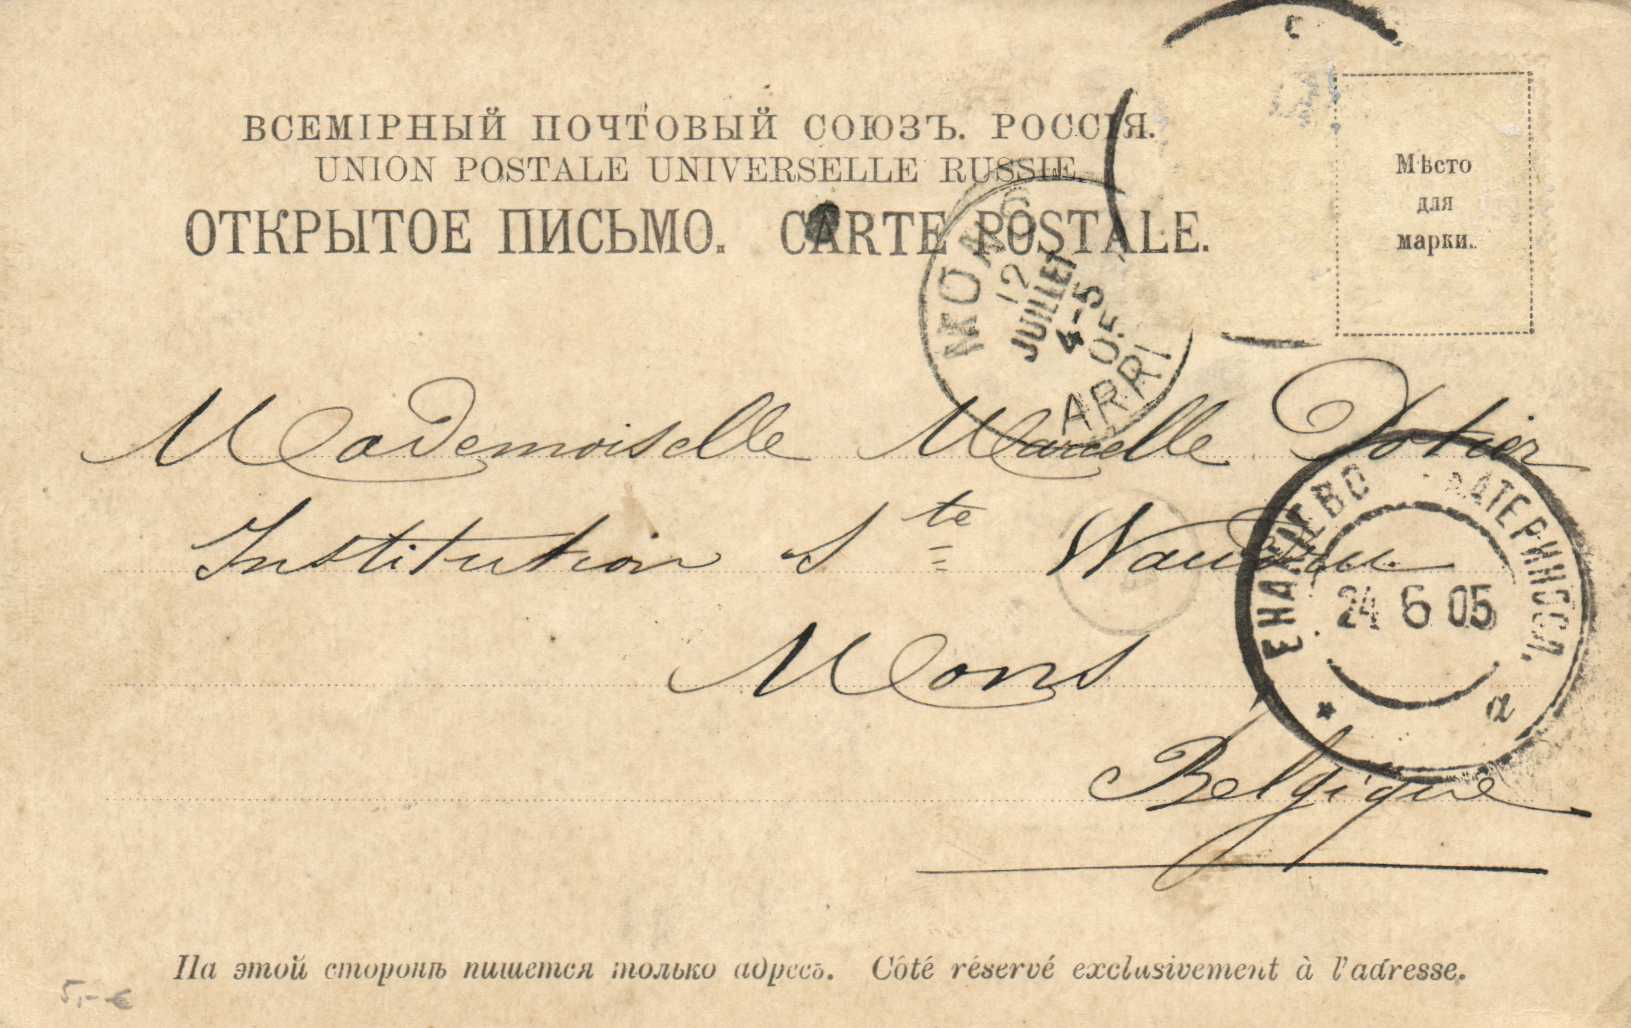 ВСЕМІРНЫЙ ПОЧТОВЫЙ СОЮЗЪ. РОССІЯ.
UNION POSTALE UNIVERSELLE RUSSIE.
ОТКРЫТОЕ ПИСЬМО. CARTE POSTALE.
Мѣсто
для
марки.
MONS
12
JUILLET
4-5
05
ARRI
Mademoiselle Marcelle Dotier
Institution Ste Waudru
Mons
Belgique
ЕНАКІЕВО ЕКАТЕРИНОСЛ.
24 6 05
* а
На этой сторонѣ пишется только адресъ. Côté réservé exclusivement à l'adresse.
5,- €